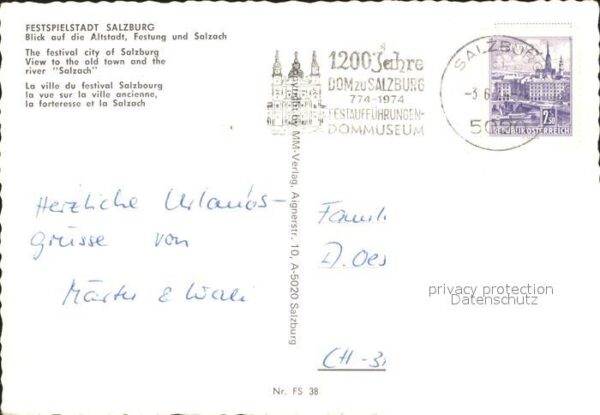 FESTSPIELSTADT SALZBURG
Blick auf die Altstadt, Festung und Salzach
The festival city of Salzburg
View to the old town and the
river "Salzach"
La ville du festival Salzbourg
la vue sur la ville ancienne,
la forteresse et la Salzach
1200 Jahre
DOM ZU SALZBURG
774-1974
FESTAUFFÜHRUNGEN-
DOMMUSEUM
SALZBURG
-3.6.
REPUBLIK ÖSTERREICH
MM-Verlag, Aignerstr. 10, A-5020 Salzburg
Herzliche Urlaubs-
Grüsse von
Familie
D. Oes
privacy protection
Datenschutz
CH-3
Nr. FS 38